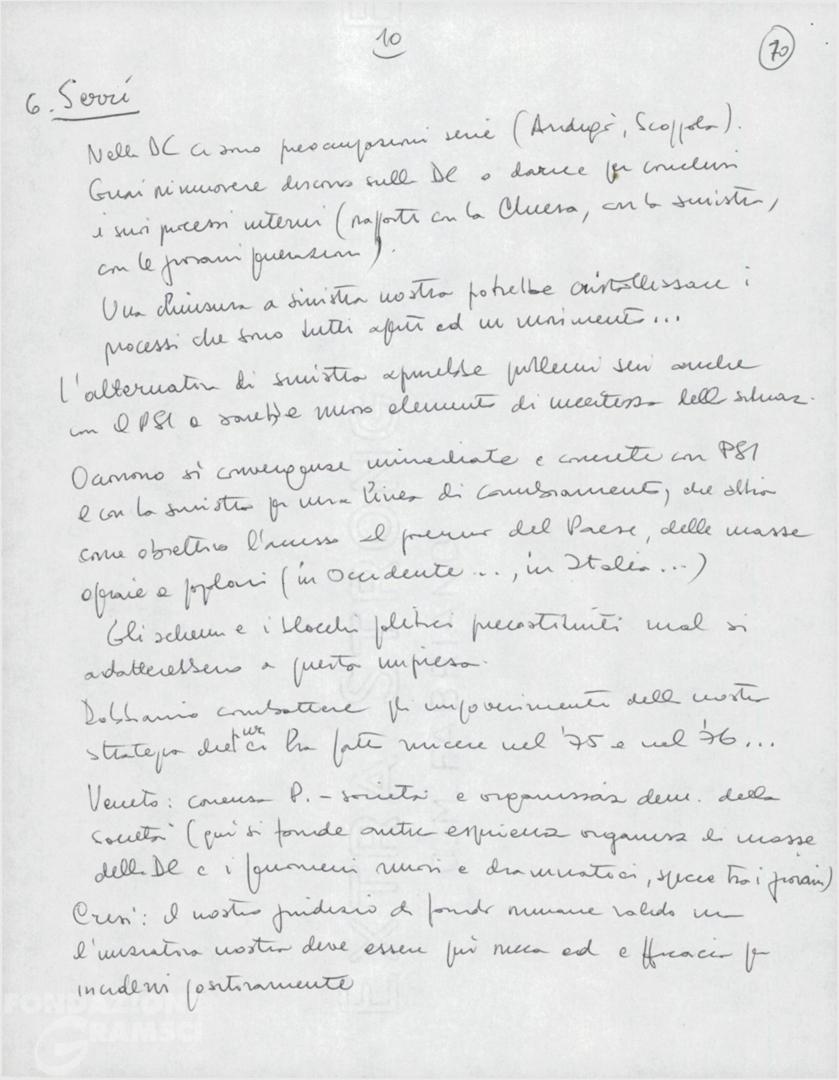 10
70
6. Serri
Nella DC ci sono preoccupazioni serie (Ardigò, Scoppola).
Guai rimuovere discorso sulla DC o darne per conclusi
i suoi processi interni (rapporti con la Chiesa, con la sinistra,
con le giovani generazioni).
Una chiusura a sinistra nostra potrebbe cristallizzare i
processi che sono tutti aperti ed in movimento...
L'alternativa di sinistra aprirebbe problemi seri anche
con il PSI e sarebbe nuovo elemento di incertezza della situaz.
Occorrono sì convergenze immediate e concrete con PSI
e con la sinistra per una linea di cambiamento, che abbia
come obiettivo l'accesso al governo del Paese, delle masse
operaie e popolari (in Occidente..., in Italia...)
Gli schemi e i blocchi politici precostituiti mal si
adatterebbero a questa impresa.
Dobbiamo combattere gli impoverimenti della nostra
strategia che pur ci ha fatto vincere nel '75 e nel '76...
Veneto: P. - società e organizzaz. dem. della
società (qui si fonde antica esperienza organizz. di masse
della DC e i fenomeni nuovi e drammatici, specie tra i giovani)
Crisi: il nostro giudizio di fondo rimane valido ma
l'iniziativa nostra deve essere più ricca ed efficace per
incidervi positivamente
FONDAZIONE
GRAMSCI
EXTRA STRONG